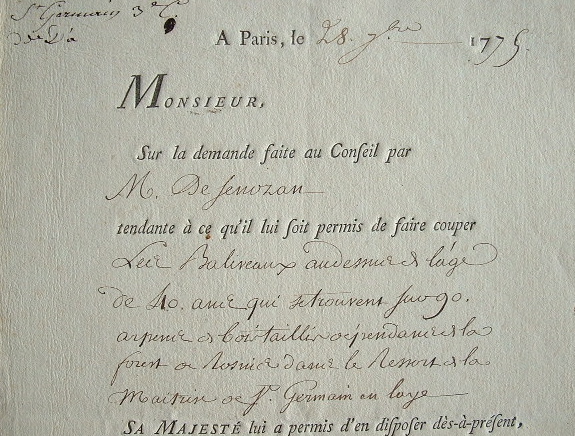 St Germain 3e C.
A Paris, le 28. 7bre 1775.
MONSIEUR,
Sur la demande faite au Conſeil par
M. De Senozan
tendante à ce qu'il lui ſoit permis de faire couper
Les Baliveaux audessus de l'age
de 40. ans qui se trouvent sur 90.
arpens de bois taillis dependans de la
forest de Rosnie dans le Ressort de la
Maitrise de St. Germain en laye
SA MAJESTÉ lui a permis d'en diſpoſer dès-à-préſent,